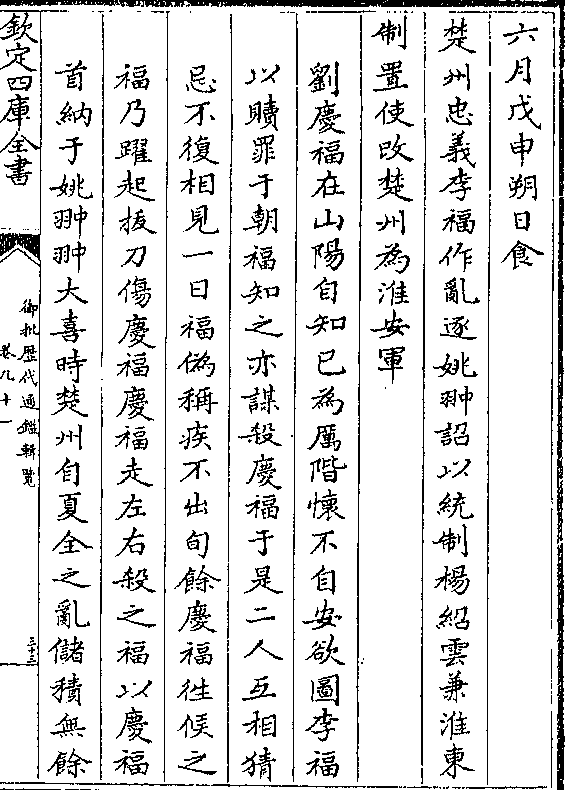 六月戊申朔日食
楚州忠義李福作亂逐姚翀詔以統制楊紹雲兼淮東
制置使改楚州為淮安軍
劉慶福在山陽自知已為厲階懷不自安欲圖李福
以贖罪于朝福知之亦謀殺慶福于是二人互相猜
忌不復相見一日福偽稱疾不出旬餘慶福徃候之
福乃躍起拔刀傷慶福慶福走左右殺之福以慶福
首納于姚翀翀大喜時楚州自夏全之亂儲積無餘
欽定四庫全書
御批歷代通鑑輯覽
卷九十一
三十三